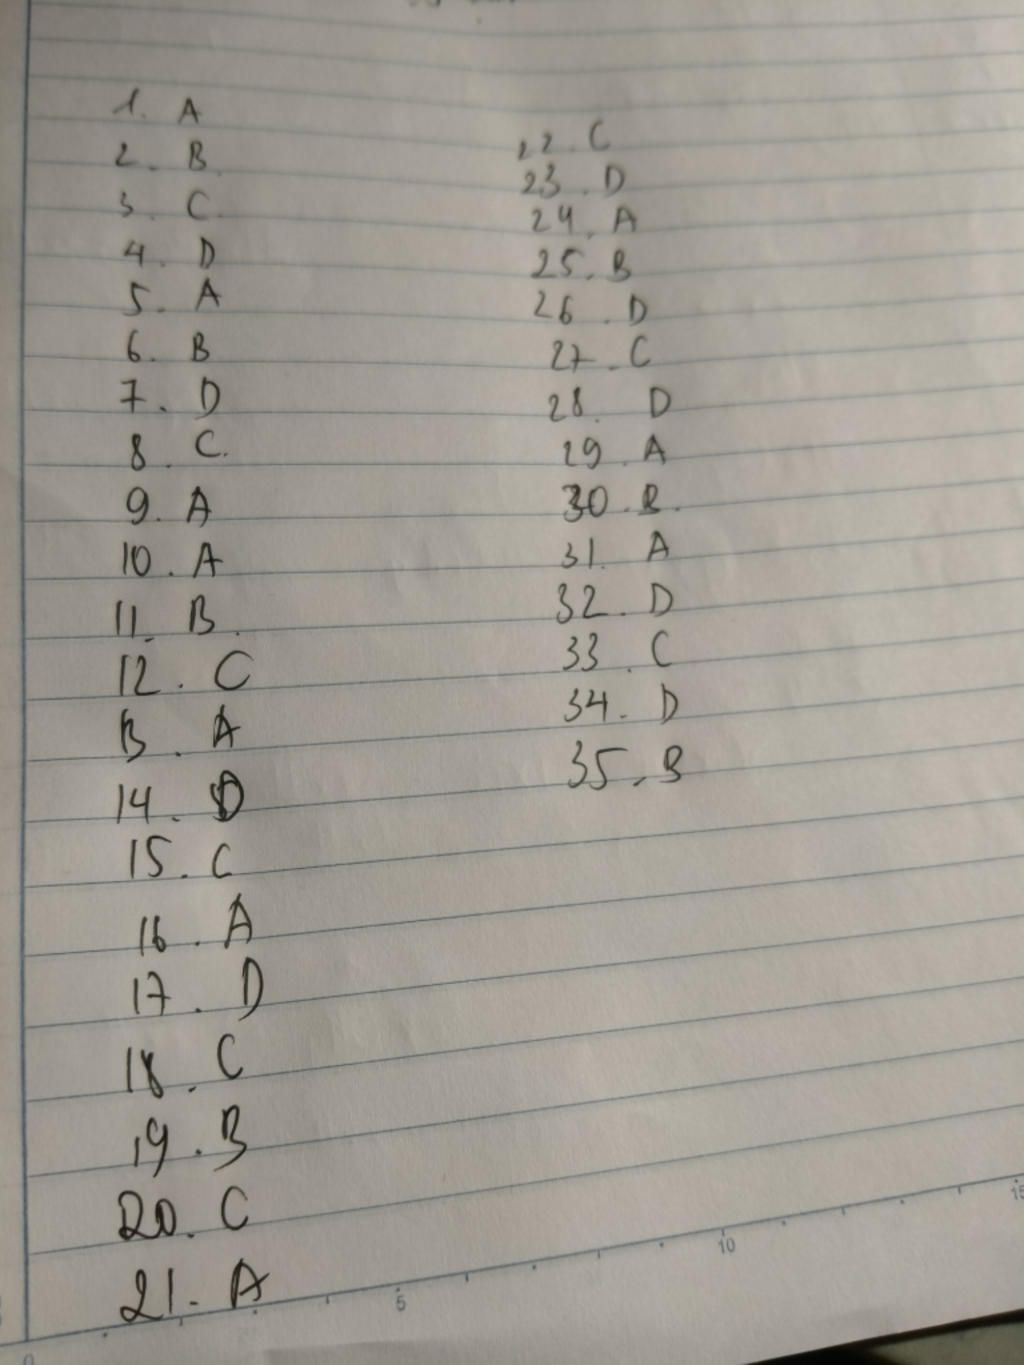 1. A
2. B.
3. C.
4. D
5. A
6. B
7. D
8. C.
9. A
10. A
11. B.
12. C
13. A
14. D
15. C
16. A
17. D
18. C
19. B
20. C
21. A
22. C
23. D
24. A
25. B
26. D
27. C
28. D
29. A
30. B.
31. A
32. D
33. C
34. D
35. B
0 5 10 15